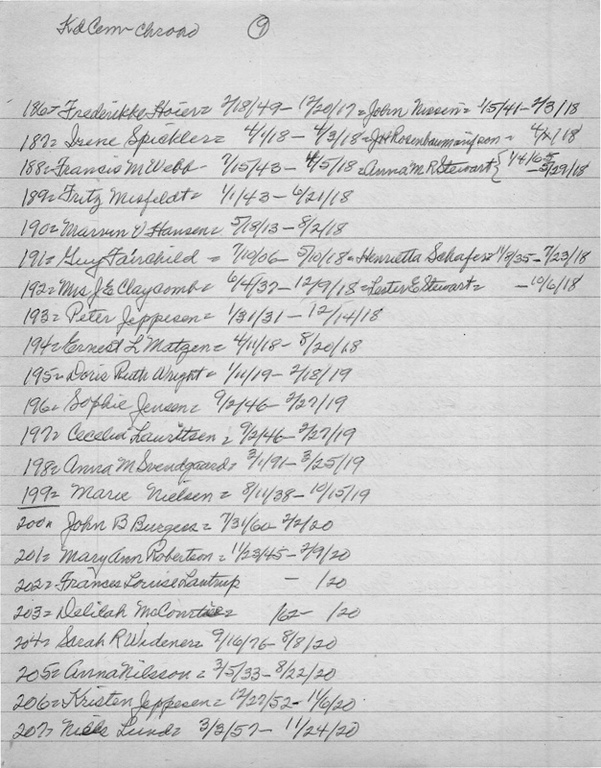 Kd Cem - Chrono 9
186= Frederikke Hoier= 2/18/49 - 12/20/17 = John Nissen = 1/5/41 - 2/3/18
187= Irene Spickler= 4/1/18 - 4/3/18 = Rosenbaum son - 4/ /18
188= Francis M Webb - 7/15/43 - 4/5/18 = Anna M R Stewart { 1/4/65 - 3/29/18
189= Fritz Misfeldt = 1/1/43 - 6/21/18
190= Marvin V Hansen = 5/13/13 - 8/2/18
191= Guy Fairchild = 7/10/06 - 5/10/18 = Henrietta Schafer= 11/8/35 - 7/23/18
192= Mrs J E Claycomb = 6/4/37 - 12/9/18 = Lester E Stewart = - 10/6/18
193= Peter Jeppesen = 1/31/31 - 12/14/18
194= Ernest L Matzen = 4/11/18 - 8/20/18
195= Doris Ruth Wright = 1/11/19 - 2/18/19
196= Sophie Jensen = 9/2/46 - 2/27/19
197= Cecelia Lauritsen = 9/2/46 - 2/27/19
198= Anna M Svendgaard= 3/1/91 - 3/25/19
199= Marie Nielsen = 8/11/38 - 10/15/19
200= John B Burgess = 7/31/60 - 2/2/20
201= Mary Ann Robertson = 11/23/45 - 2/9/20
202= Frances Louise Lantrup - /20
203= Delilah = /62 - /20
204= Sarah R Widener= 9/16/76 - 8/8/20
205= Anna Nilsson = 3/5/33 - 8/22/20
206= Kristen Jeppesen = 12/27/52 - 11/6/20
207= Niels Lund = 3/3/57 - 11/24/20